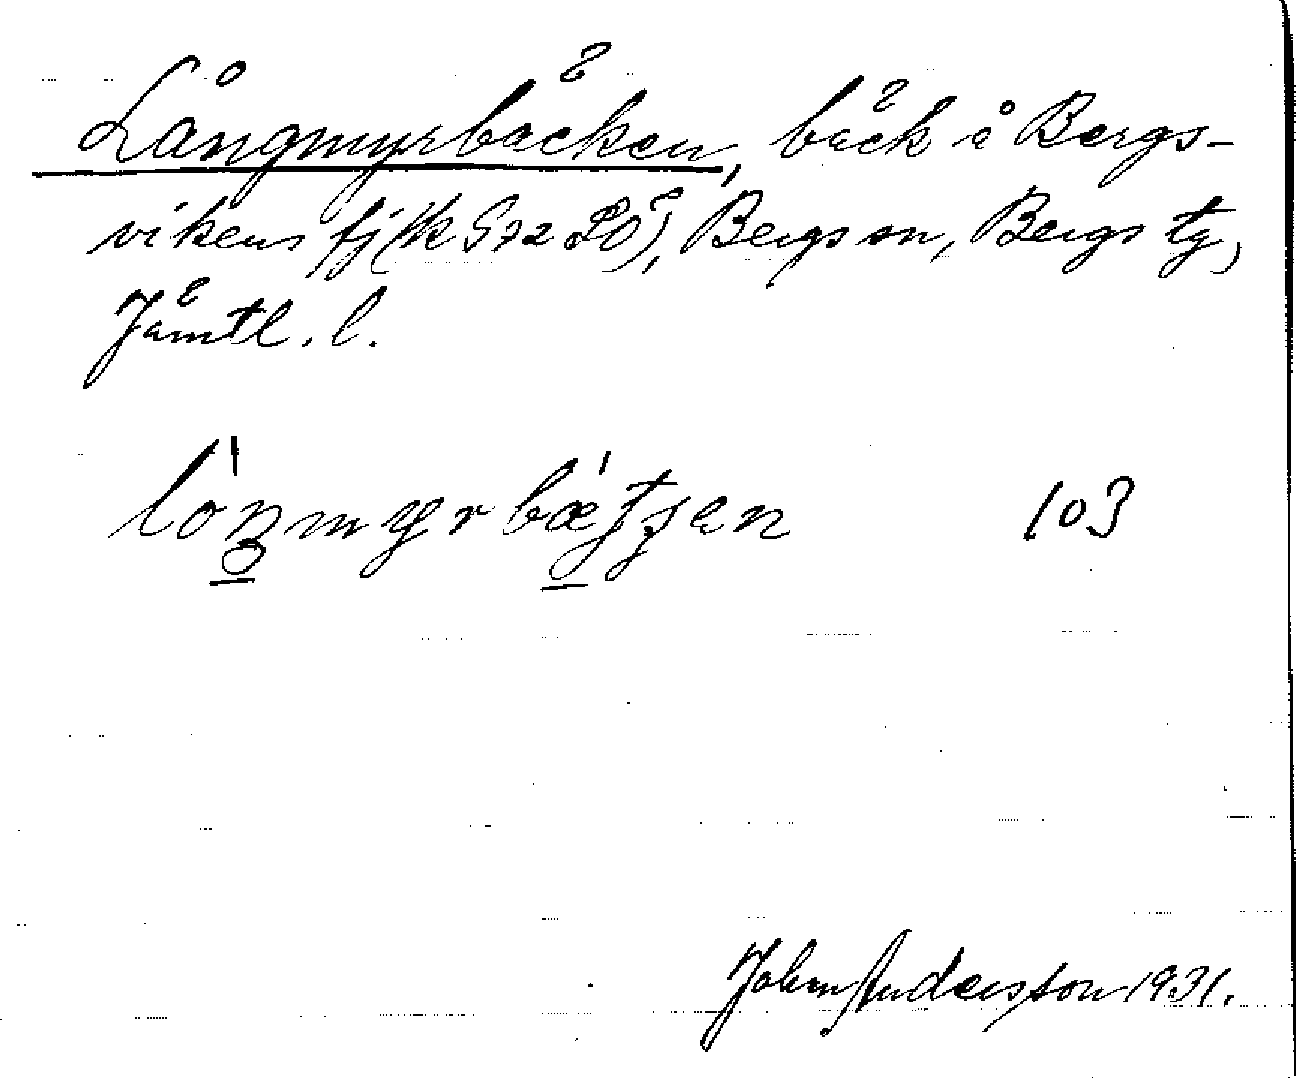 Långmyrbäcken, bäck å Bergs-
vikens fj (k S72 SÖ), Bergs sn, Bergs tg,
Jämtl. l.
103
John Andersson 1931.